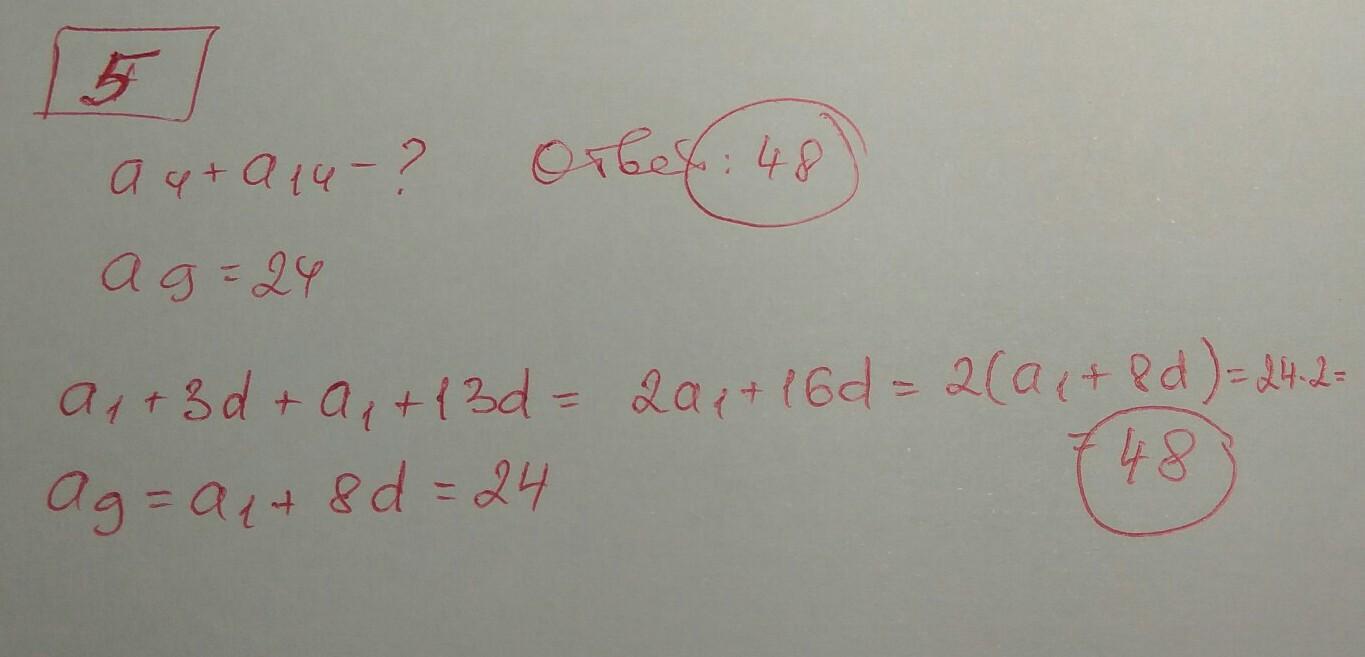 5
a₄ + a₁₄ - ? Ответ: 48
a₉ = 24
a₁ + 3d + a₁ + 13d = 2a₁ + 16d = 2(a₁ + 8d) = 24·2 =
= 48
a₉ = a₁ + 8d = 24